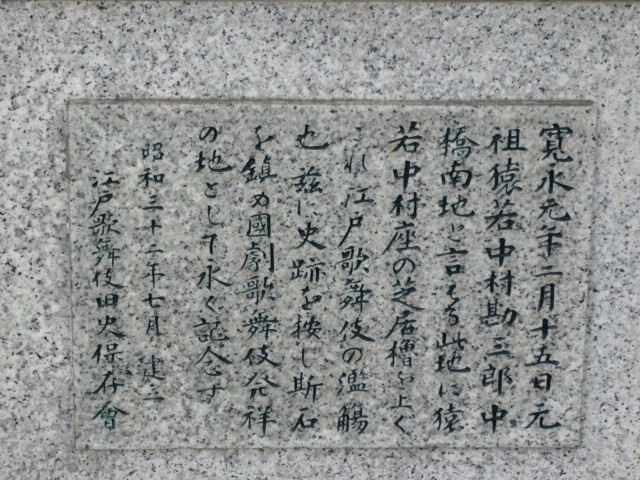 寛永元年二月十五日元
祖猿若中村勘三郎中
橋南地と言える此地に猿
若中村座の芝居櫓を上く
これ江戸歌舞伎の濫觴
也茲に史跡を按し斯石
を鎮め國劇歌舞伎発祥
の地として永く記念す
昭和三十二年七月建之
江戸歌舞伎旧史保存會